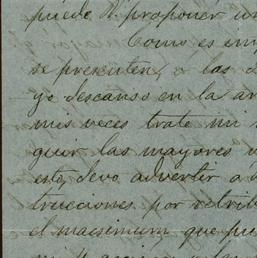 puede V. proponer un
Como es
se presenten, o las
yo descanso en la
mis veces trate mi
quer las mayores
esto, devo advertir a
trucciones por retrib
el macsimum que pue